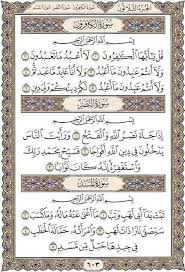 الجزء الثلاثون
سورة الكافرون
بسم الله الرحمن الرحيم
قل يأيها الكفرون ۝ لا أعبد ما تعبدون ۝
ولا أنتم عبدون ما أعبد ۝ ولا أنا عابد ما عبدتم ۝
ولا أنتم عبدون ما أعبد ۝ لكم دينكم ولي دين ۝
سورة النصر
بسم الله الرحمن الرحيم
إذا جاء نصر الله والفتح ۝ ورأيت الناس
يدخلون في دين الله أفواجا ۝ فسبح بحمد ربك
واستغفره إنه كان توابا ۝
سورة المسد
بسم الله الرحمن الرحيم
تبت يدا أبي لهب وتب ۝ ما أغنى عنه ماله وما كسب ۝
سيصلى نارا ذات لهب ۝ وامرأته حمالة الحطب ۝
في جيدها حبل من مسد ۝
٦٠٣